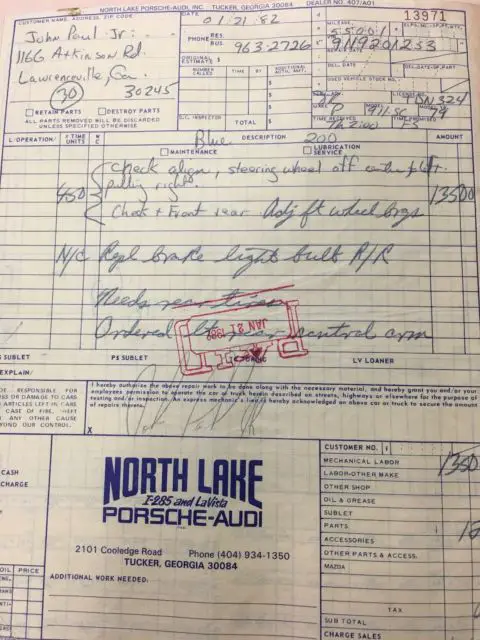 NORTH LAKE PORSCHE-AUDI, INC. TUCKER, GEORGIA 30084 DEALER NO. 407/A01
CUSTOMER NAME, ADDRESS, ZIP CODE
DATE
01 21 82
13971
John Paul Jr.
1166 Atkinson Rd.
Lawrenceville, Ga.
30 30245
PHONE RES. BUS.
963-2726
ORIGINAL ESTIMATE $
NUMBER CALLED TIME BY ADDITIONAL AUTH. AMT.
$
$
$
TOTAL $
Q.C. INSPECTOR
MILEAGE
55001
9119201233
DEL. DATE
DEL.DATE-OF.PART
USED VEHICLE STOCK NO.
LICENSE NO.
TDN324
MODEL
911-SC
79
TIME RECEIVED
TIME PROMISED
RETAIN PARTS DESTROY PARTS
ALL PARTS REMOVED WILL BE DISCARDED
UNLESS SPECIFIED OTHERWISE
L/OPERATION TIME UNITS
Blue
DESCRIPTION
200
AMOUNT
MAINTENANCE
LUBRICATION SERVICE
check align, steering wheel off center
pulling right.
450
13500
Check + Front rear Adj ft wheel brgs
N/C Repl brake light bulb R/R
Needs rear tires
Ordered rear control arm
PAID
JAN 21 1982
SUBLET PS SUBLET LV LOANER
EXPLAIN
I hereby authorize the above repair work to be done along with the necessary material, and hereby grant you and/or your
employees permission to operate the car or truck herein described on streets, highways or elsewhere for the purpose of
testing and/or inspection. An express mechanic's lien is hereby acknowledged on above car or truck to secure the amount
of repairs thereto.
X
BE RESPONSIBLE FOR
SS OR DAMAGE TO CARS
ARTICLES LEFT IN CARS
CASE OF FIRE, THEFT
ANY OTHER CAUSE
YOND OUR CONTROL.
CASH
CHARGE
NORTH LAKE
I-285 and LaVista
PORSCHE-AUDI
2101 Cooledge Road Phone (404) 934-1350
TUCKER, GEORGIA 30084
ADDITIONAL WORK NEEDED.
OIL PRICE
CUSTOMER NO.
MECHANICAL LABOR
LABOR-OTHER MAKE
OTHER SHOP
OIL & GREASE
SUBLET
PARTS
ACCESSORIES
OTHER PARTS & ACCESS.
MAZDA
TAX
SUB TOTAL
CHARGE SALES